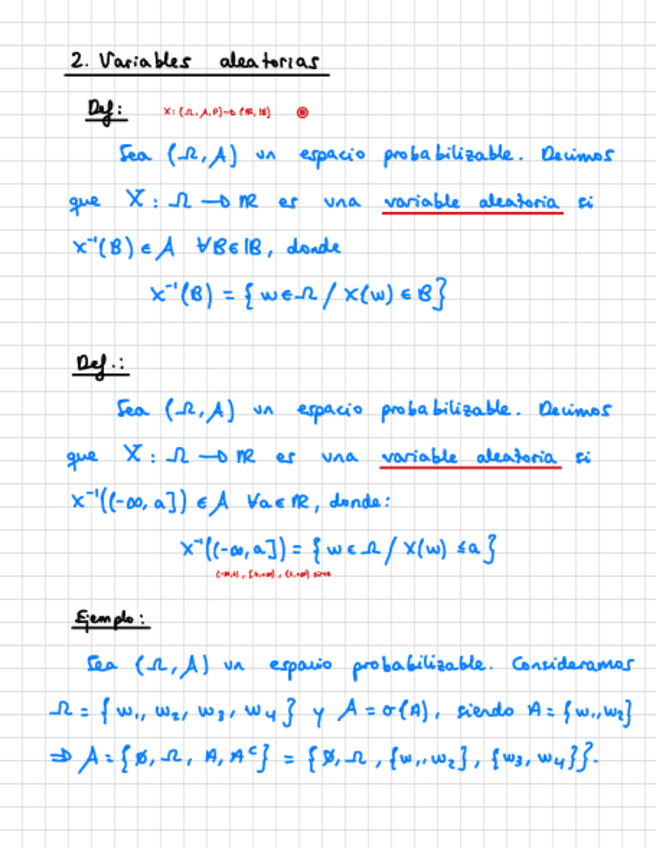 2. Variables aleatorias
Def: X: (Ω, A, P) → (ℝ, 𝔹)
Sea (Ω, A) un espacio probabilizable. Decimos
que X: Ω → ℝ es una variable aleatoria si
X⁻¹(B) ∈ A ∀B ∈ 𝔹, donde
X⁻¹(B) = {w ∈ Ω / X(w) ∈ B}
Def.:
Sea (Ω, A) un espacio probabilizable. Decimos
que X: Ω → ℝ es una variable aleatoria si
X⁻¹((-∞, a]) ∈ A ∀a ∈ ℝ, donde:
X⁻¹((-∞, a]) = {w ∈ Ω / X(w) ≤ a}
Ejemplo:
Sea (Ω, A) un espacio probabilizable. Consideramos
Ω = {w₁, w₂, w₃, w₄} y A = σ(A), siendo A = {w₁, w₂}
⇒ A = {∅, Ω, A, Aᶜ} = {∅, Ω, {w₁, w₂}, {w₃, w₄}}.